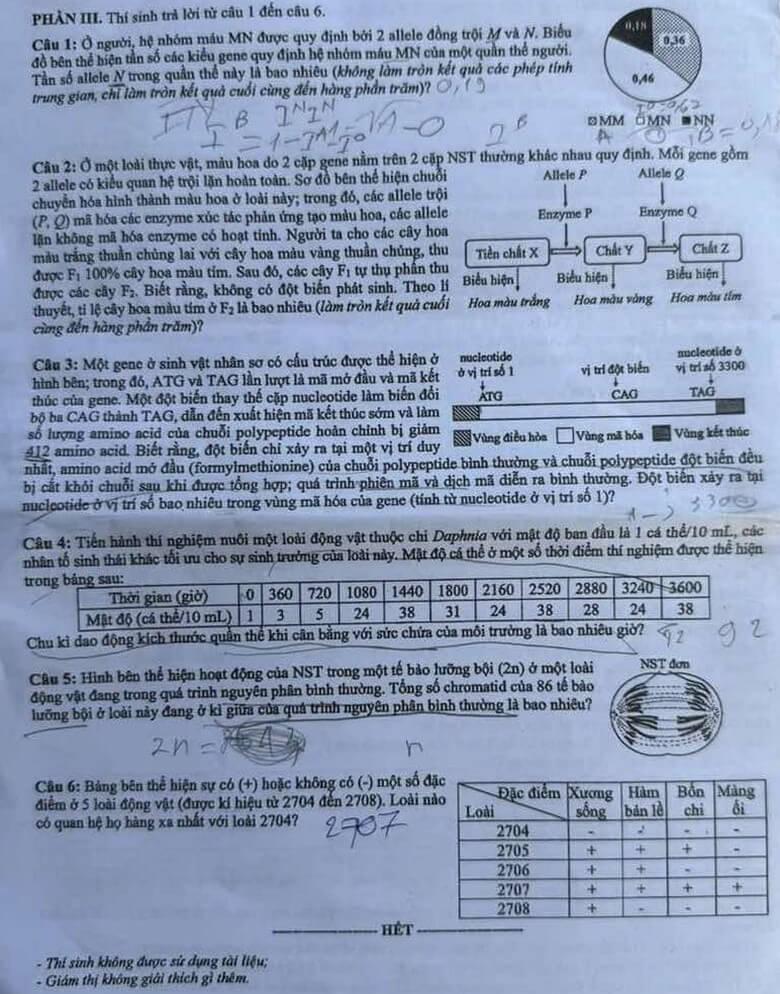 PHẦN III. Thí sinh trả lời từ câu 1 đến câu 6.
Câu 1: Ở người, hệ nhóm máu MN được quy định bởi 2 allele đồng trội M và N. Biểu
đồ bên thể hiện tần số các kiểu gene quy định hệ nhóm máu MN của một quần thể người.
Tần số allele N trong quần thể này là bao nhiêu (không làm tròn kết quả các phép tính
trung gian, chỉ làm tròn kết quả cuối cùng đến hàng phần trăm)? 0,19
0,18
0,36
0,46
MM MN NN
Câu 2: Ở một loài thực vật, màu hoa do 2 cặp gene nằm trên 2 cặp NST thường khác nhau quy định. Mỗi gene gồm
2 allele có kiểu quan hệ trội lặn hoàn toàn. Sơ đồ bên thể hiện chuỗi
chuyển hóa hình thành màu hoa ở loài này; trong đó, các allele trội
(P, Q) mã hóa các enzyme xúc tác phản ứng tạo màu hoa, các allele
lặn không mã hóa enzyme có hoạt tính. Người ta cho các cây hoa
màu trắng thuần chủng lai với cây hoa màu vàng thuần chủng, thu
được F₁ 100% cây hoa màu tím. Sau đó, các cây F₁ tự thụ phấn thu
được các cây F₂. Biết rằng, không có đột biến phát sinh. Theo lí
thuyết, tỉ lệ cây hoa màu tím ở F₂ là bao nhiêu (làm tròn kết quả cuối
cùng đến hàng phần trăm)?
Allele P Allele Q
Enzyme P Enzyme Q
Tiền chất X Chất Y Chất Z
Biểu hiện Biểu hiện Biểu hiện
Hoa màu trắng Hoa màu vàng Hoa màu tím
Câu 3: Một gene ở sinh vật nhân sơ có cấu trúc được thể hiện ở
hình bên; trong đó, ATG và TAG lần lượt là mã mở đầu và mã kết
thúc của gene. Một đột biến thay thế cặp nucleotide làm biến đổi
bộ ba CAG thành TAG, dẫn đến xuất hiện mã kết thúc sớm và làm
số lượng amino acid của chuỗi polypeptide hoàn chỉnh bị giảm
412 amino acid. Biết rằng, đột biến chỉ xảy ra tại một vị trí duy
nhất, amino acid mở đầu (formylmethionine) của chuỗi polypeptide bình thường và chuỗi polypeptide đột biến đều
bị cắt khỏi chuỗi sau khi được tổng hợp; quá trình phiên mã và dịch mã diễn ra bình thường. Đột biến xảy ra tại
nucleotide ở vị trí số bao nhiêu trong vùng mã hóa của gene (tính từ nucleotide ở vị trí số 1)?
nucleotide
ở vị trí số 1
vị trí đột biến
nucleotide ở
vị trí số 3300
ATG CAG TAG
Vùng điều hòa Vùng mã hóa Vùng kết thúc
Câu 4: Tiến hành thí nghiệm nuôi một loài động vật thuộc chi Daphnia với mật độ ban đầu là 1 cá thể/10 mL, các
nhân tố sinh thái khác tối ưu cho sự sinh trưởng của loài này. Mật độ cá thể ở một số thời điểm thí nghiệm được thể hiện
trong bảng sau:
Thời gian (giờ) 0 360 720 1080 1440 1800 2160 2520 2880 3240 3600
Mật độ (cá thể/10 mL) 1 3 5 24 38 31 24 38 28 24 38
Chu kì dao động kích thước quần thể khi cân bằng với sức chứa của môi trường là bao nhiêu giờ?
92
Câu 5: Hình bên thể hiện hoạt động của NST trong một tế bào lưỡng bội (2n) ở một loài
động vật đang trong quá trình nguyên phân bình thường. Tổng số chromatid của 86 tế bào
lưỡng bội ở loài này đang ở kì giữa của quá trình nguyên phân bình thường là bao nhiêu?
NST đơn
2n =
n
Câu 6: Bảng bên thể hiện sự có (+) hoặc không có (-) một số đặc
điểm ở 5 loài động vật (được kí hiệu từ 2704 đến 2708). Loài nào
có quan hệ họ hàng xa nhất với loài 2704? 2707
Đặc điểm Xương sống Hàm bản lề Bốn chi Màng ối
Loài
2704 - - - -
2705 + + + -
2706 + + - -
2707 + + + +
2708 + - - -
HẾT
- Thí sinh không được sử dụng tài liệu;
- Giám thị không giải thích gì thêm.